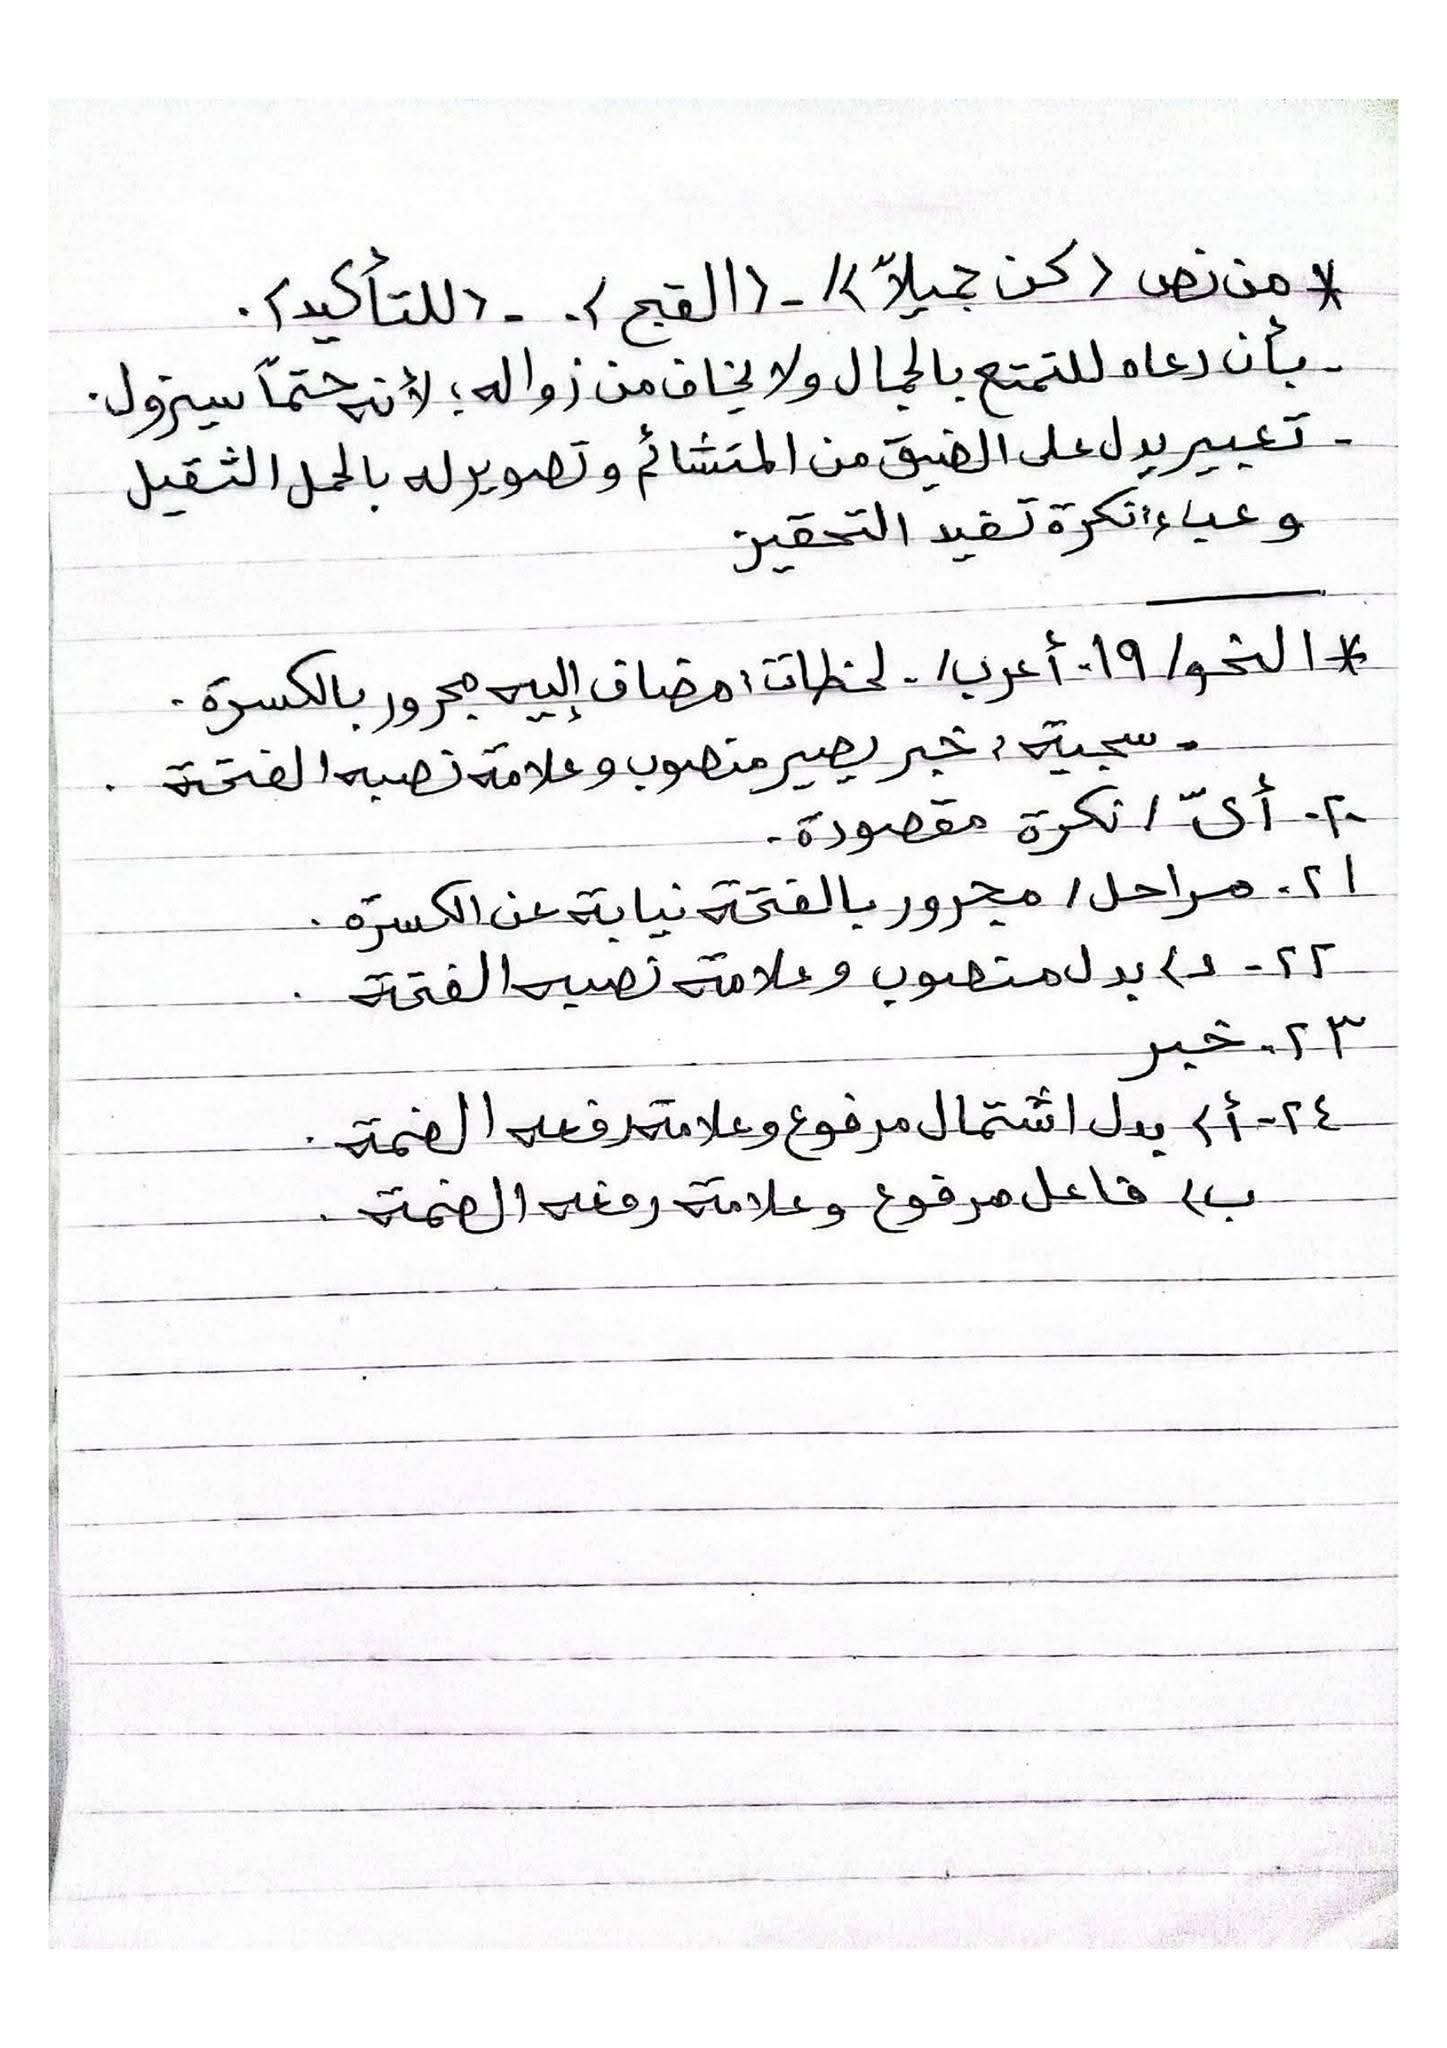 * من نص (كن جميلاً)/ - (القبح). - (للتأكيد).
- بأن دعاه للتمتع بالجمال ولا يخاف من زواله؛ لأنه حتماً سيزول.
- تعبير يدل على الضيق من المتشائم وتصوير له بالحمل الثقيل
وعبء: نكرة تفيد التحقير
* النحو/ ١٩- أعرب/ - لحظات: مضاف إليه مجرور بالكسرة.
- سجية: خبر يصير منصوب وعلامة نصبه الفتحة.
٢٠- أىّ / نكرة مقصودة.
٢١- مراحل/ مجرور بالفتحة نيابة عن الكسرة.
٢٢- د) بدل منصوب وعلامة نصبه الفتحة.
٢٣- خبر
٢٤- أ) بدل اشتمال مرفوع وعلامة رفعه الضمة.
ب) فاعل مرفوع وعلامة رفعه الضمة.